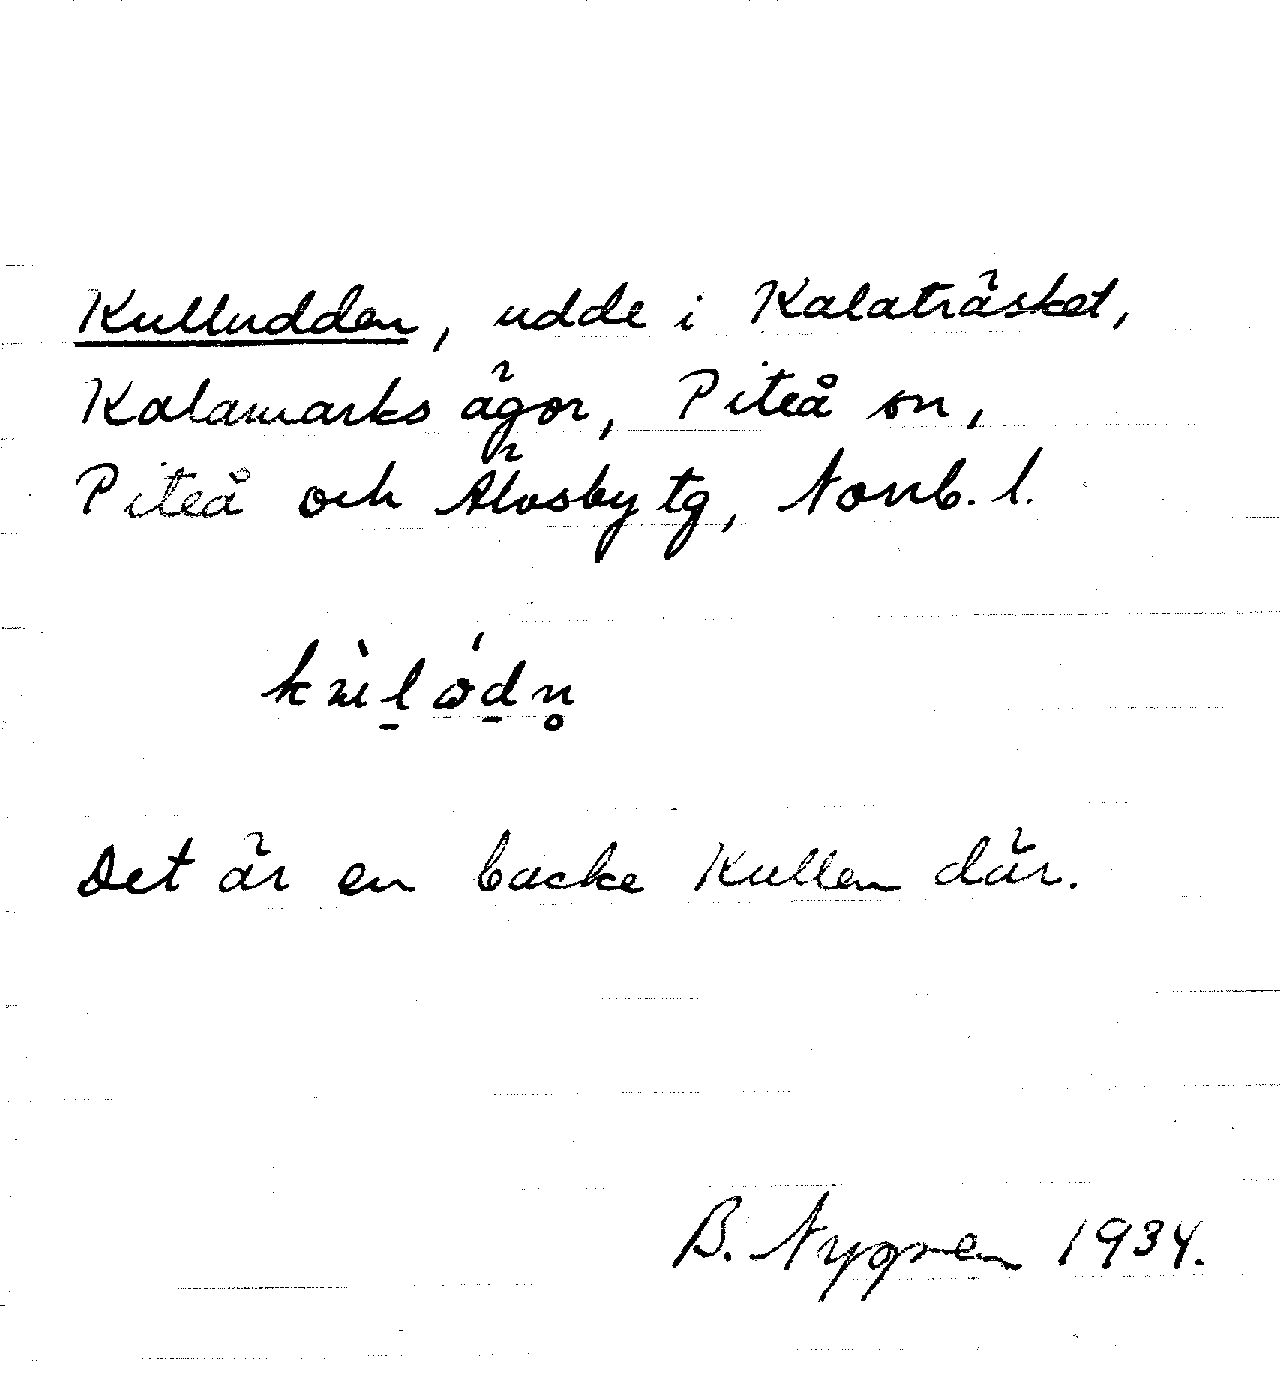 Kulludden, udde i Kalaträsket,
Kalamarks ägor, Piteå sn,
Piteå och Älvsby tg, Norrb. l.
Det är en backe Kullen där.
B. Nygren 1934.